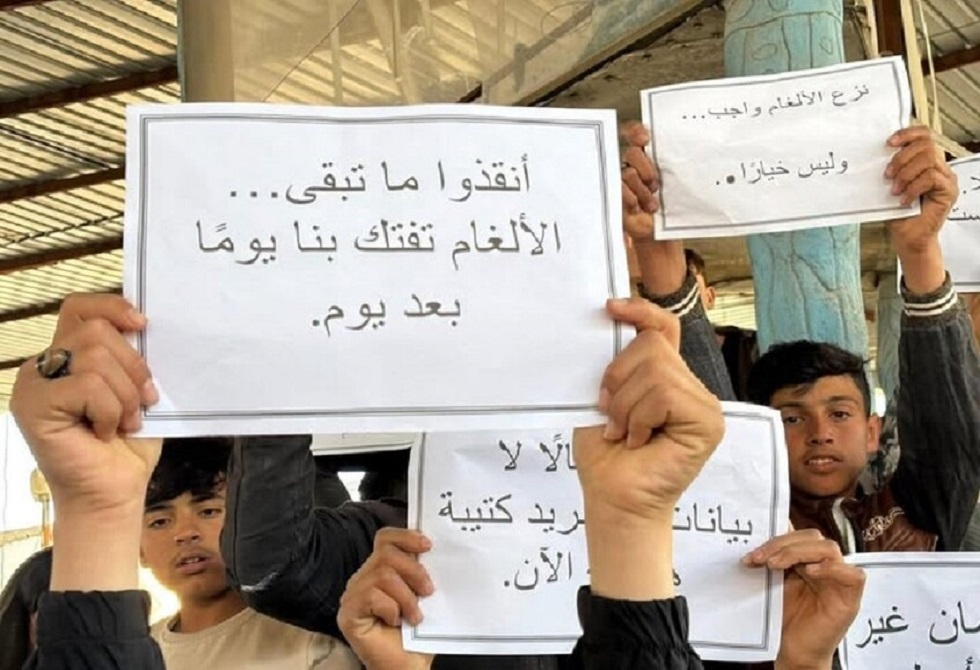 أنقذوا ما تبقى...
الألغام تفتك بنا يومًا
بعد يوم.
نزع الألغام واجب...
وليس خيارًا..
لا
كتيبة
الآن.
غير